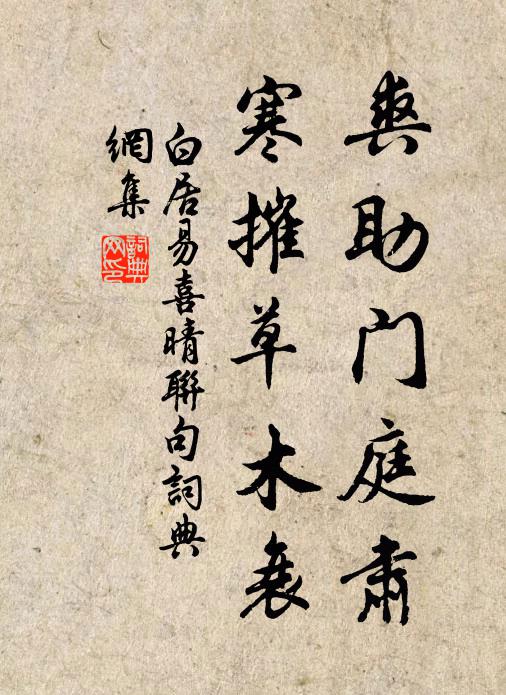 爽助門庭肅
寒摧草木衰
白居易喜晴聯句詞典
網集
詞典
网印